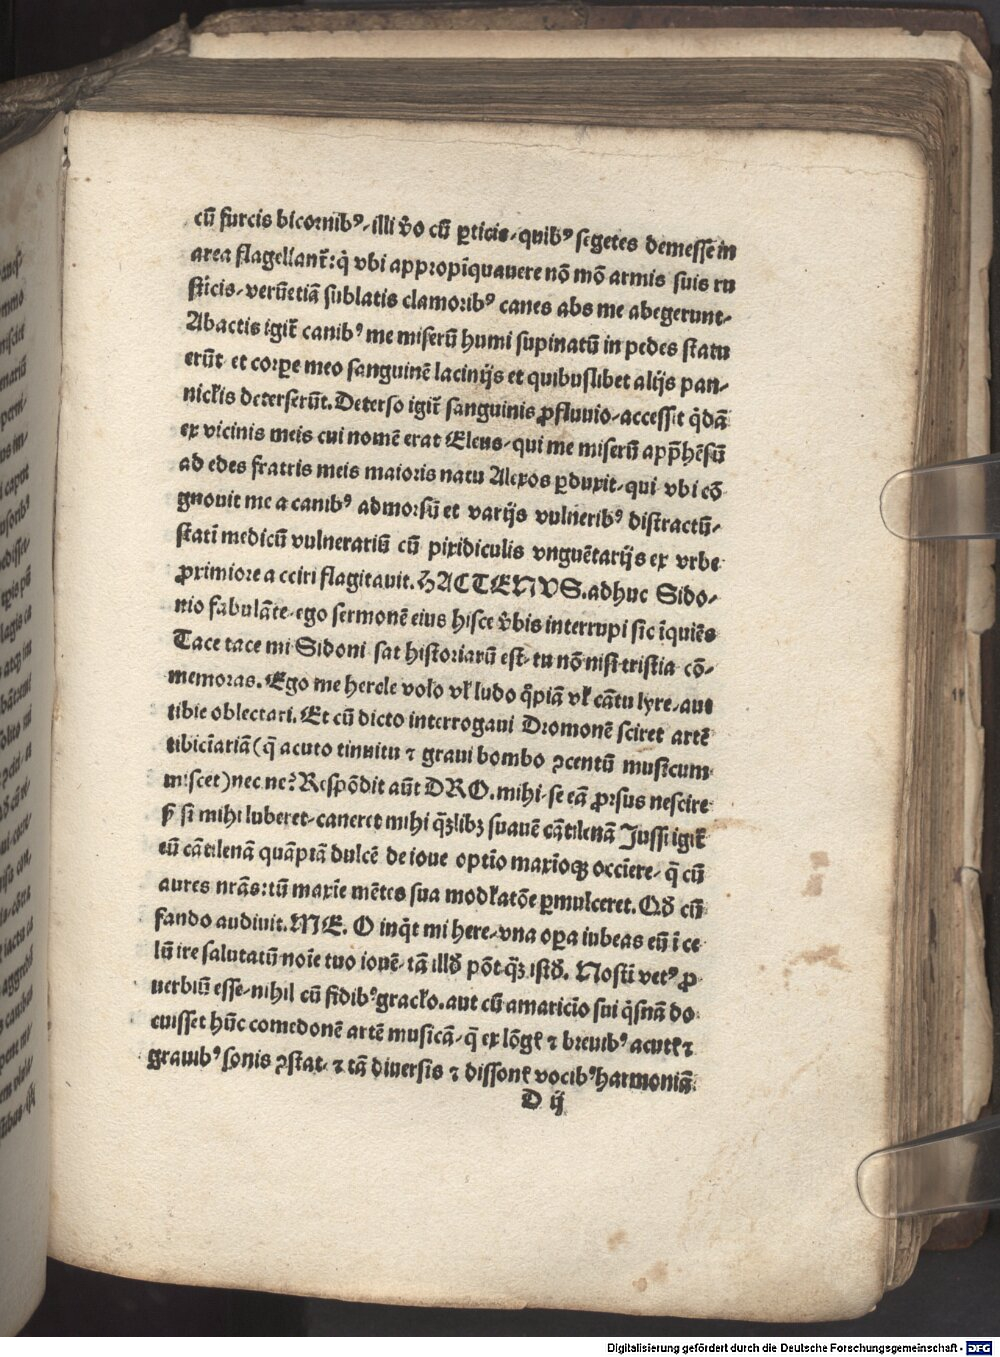 cū furcis bicornibꝰ, illi v̊o cū ꝑticis, quibꝰ segetes demesse in
area flagellant᷑: q̇ vbi appropīquauere nō mō armis suis ru
sticis, verūetiā sublatis clamoribꝰ canes abs me abegerunt,
Abactis igit᷑ canibꝰ me miserū humi supinatū in pedes statu
erūt et corꝑe meo sanguinē lacinijs et quibuslibet alijs pan,
nicl̵is deterserūt. Deterso igit᷑ sanguinis ꝓfluuio, accessit q̇dā
ex vicinis meis cui nomē erat Eleus, qui me miserū app̄hēsū
ad edes fratris meis maioris natu Alexos ꝑduxit, qui vbi cō
gnouit me a canibꝰ admorsū et varijs vulneribꝰ distractū,
statī medicū vulnerariū cū pixidiculis vnguētarijs ex vrbe
ꝓximiore acciri flagitauit. HACTENVS. adhuc Sido,
nio fabulāte, ego sermonē eius hisce v̊bis interrupi sic īquiēs
Tace tace mi Sidoni sat historiarū est, tu nō nisi tristia cō,
memoras. Ego me hercle volo vl̵ ludo q̊piā vl̵ cātu lyre, aut
tibie oblectari. Et cū dicto interrogaui Dromonē sciret artē
tibicīariā (q̄ acuto tinnitu ⁊ graui bombo ꝯcentū musicum
miscet) nec ne? Respōdit aūt DRO. mihi, se eā ꝓrsus nescire
ꝑ si mihi luberet, caneret mihi q̄ꝫlibꝫ suauē cātilenā Jussi igit᷑
eū cātilenā quāpiā dulcē de ioue optīo maxīoqꝫ occiere, q̄ cū
aures nr̄as: tū maxīe mētes sua modl̵atōe ꝑmulceret. Qḋ cū
fando audiuit. ME. O inq̇t mi here, vna oꝑa iubeas eū ī ce
lū ire salutatū noīe tuo iouē, tā illḋ pōt q̄ꝫ istḋ. Nosti vetꝰ ꝓ
uerbiū esse, nihil cū fidibꝰ gracl̵o. aut cū amaricīo sui q̇snā do
cuisset hūc comedonē artē musicā, q̄ ex lōgꝭ ⁊ breuibꝰ acutꝭ ⁊
grauibꝰ sonis ꝯstat, ⁊ tā diuersis ⁊ dissonꝭ vocibꝰ harmoniā
D ij
Digitalisierung gefördert durch die Deutsche Forschungsgemeinschaft - DFG